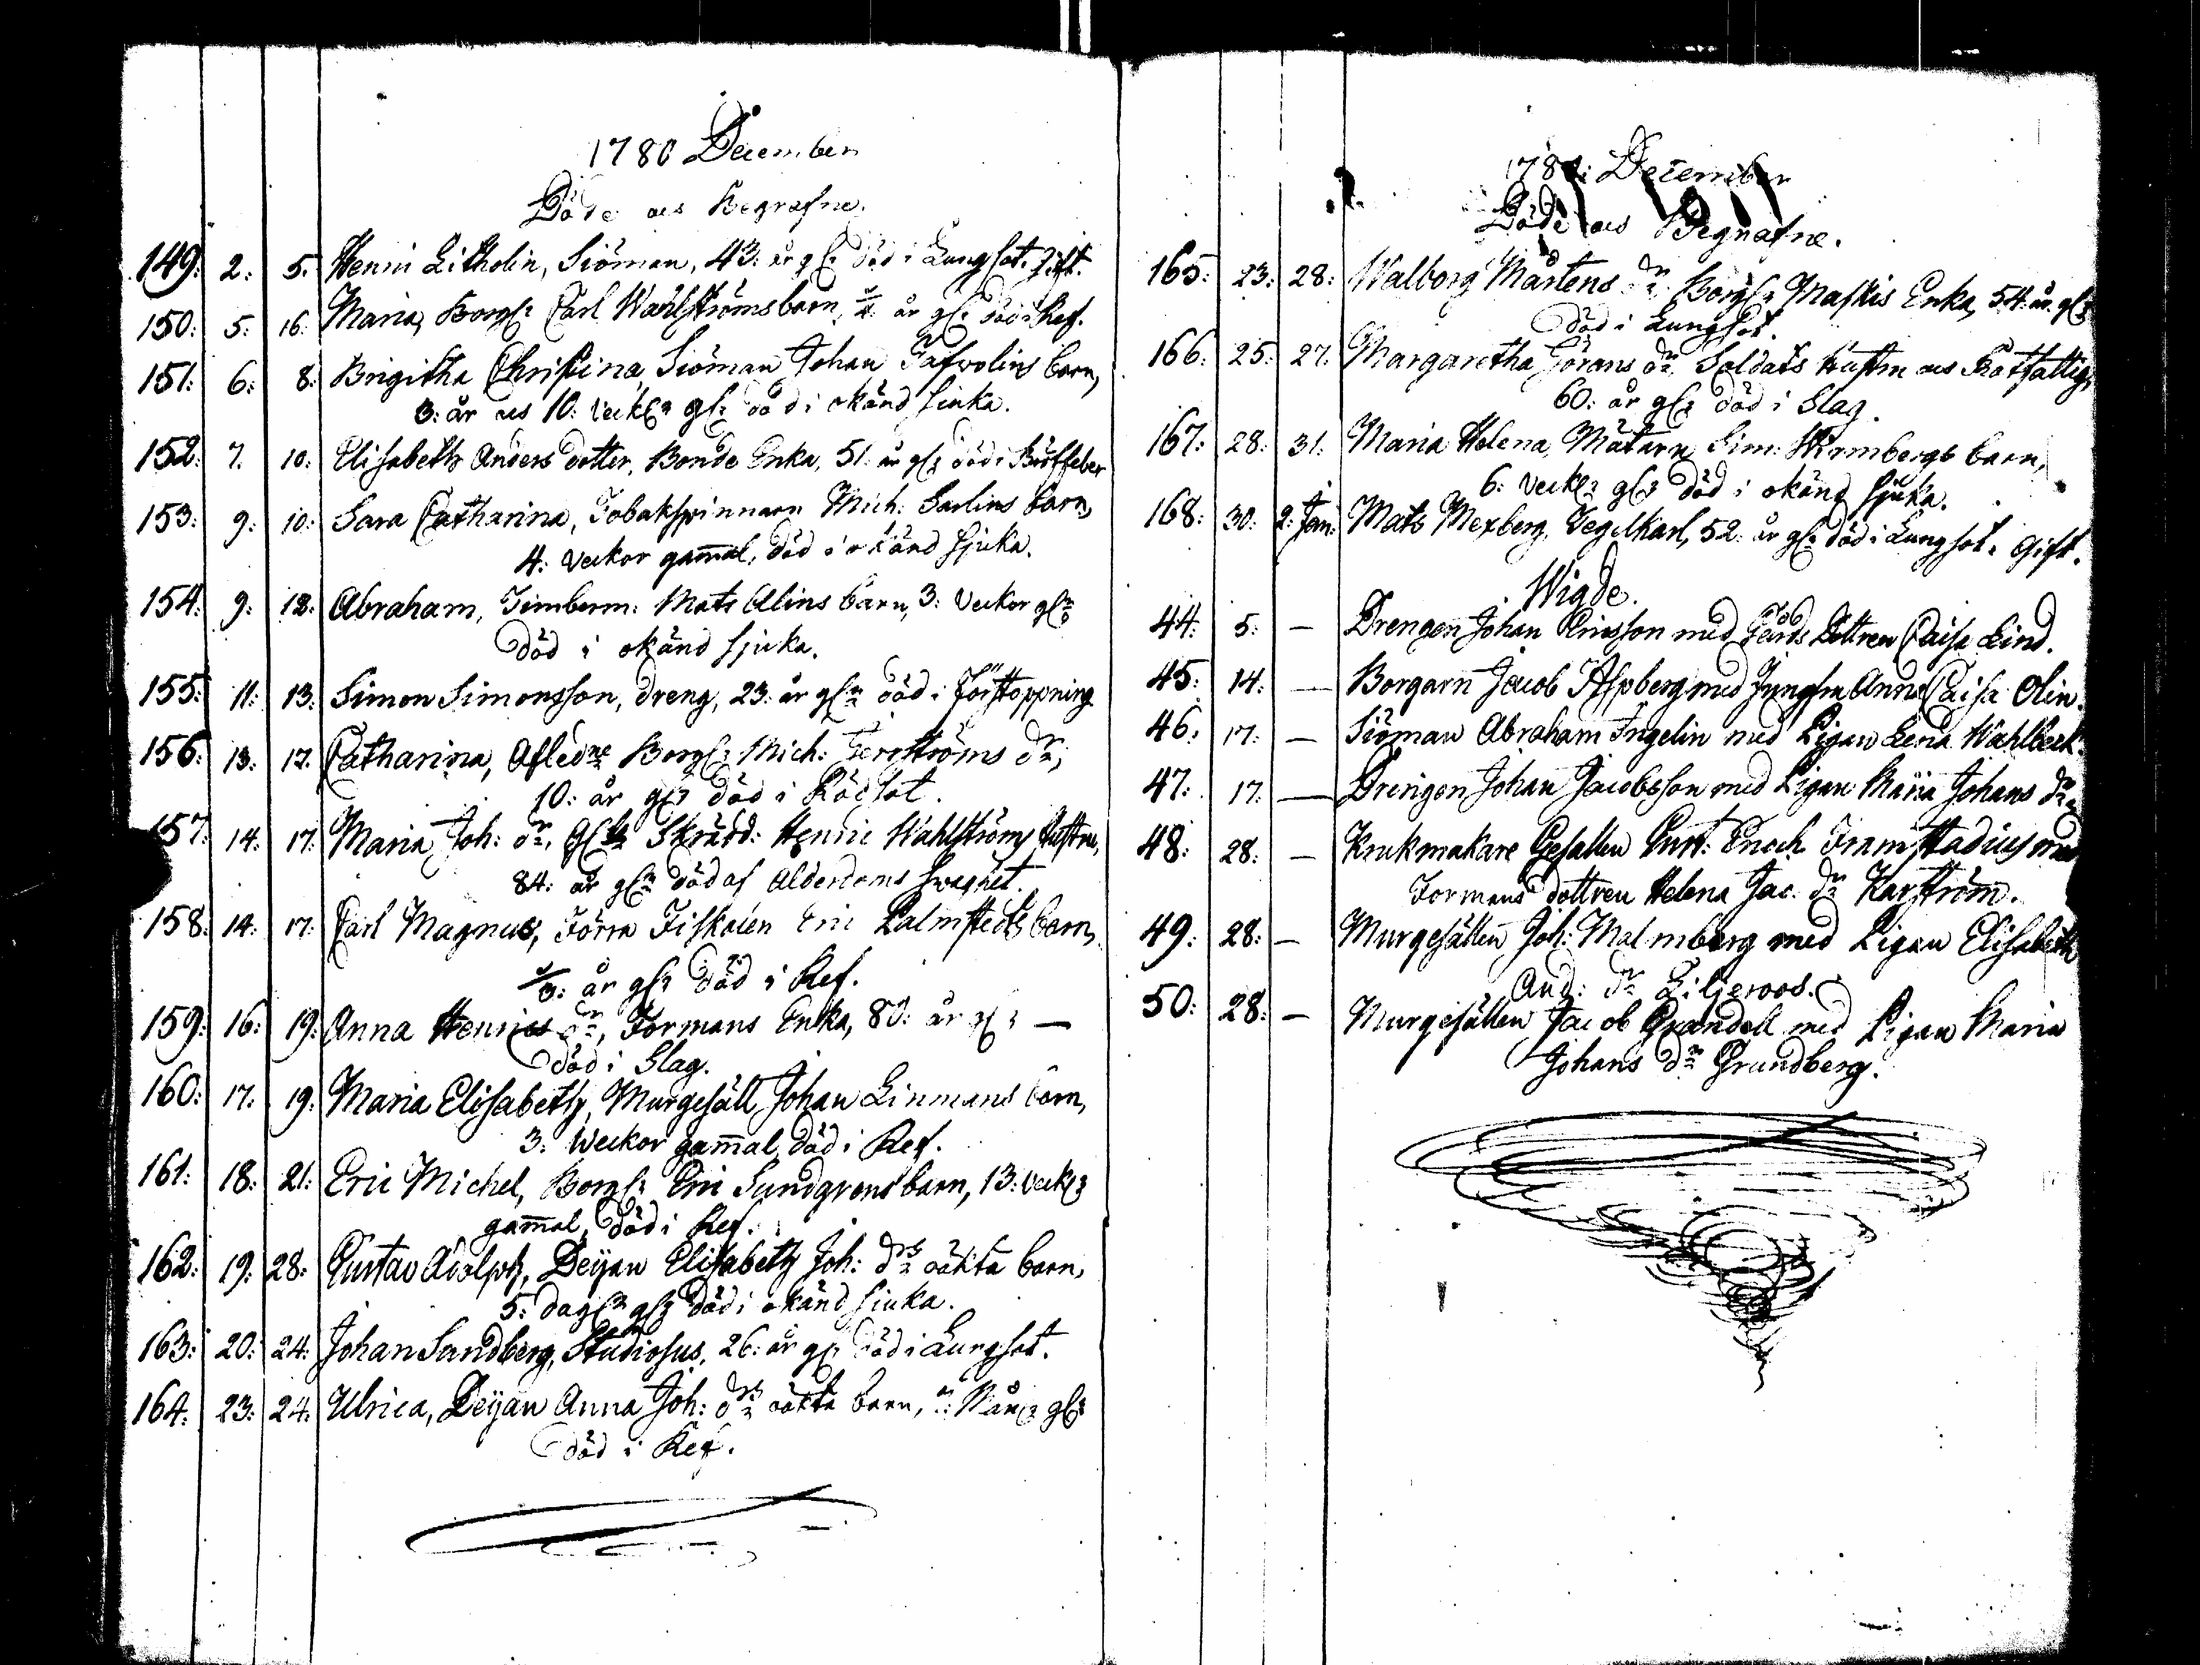 1780 December
Döde och Begrafne.
149: 2: 5. Henric Litholin, Siöman, 43: år gl: död i Lungsot. gift.
150: 5: 16. Maria, Borgl: Carl Wahlströms barn, år gl: död i Kef.
151: 6: 8: Brigitha Christina, Siöman Johan barn,
3: år och 10: veckl: gl: död i okänd siuka.
152: 7. 10: Elisabeth Anders dotter, Bonde Enka, 51 år gl: död i Bröstfeber
153: 9: 10: Sara Catharina, Tobakspinnaren Mich: Sarlins barn,
4: veckor gam̄al, död i okänd sjuka.
154: 9: 12: Abraham, Timberm: Mats Alins barn, 3: veckor gl:
död i okänd sjuka.
155: 11: 13: Simon Simonsson, dreng, 23: år gl: död i Förstoppning
156: 13: 17. Catharina, Afledne Borgl: Mich: dr,
10: år gl: död i Rödsot.
157: 14: 17: Maria Joh: dr, Skrädd: Henric Wahlströms hustru,
84: år gl: död af Ålderdoms swaghet.
158: 14: 17: Carl Magnus, Förra Fiskalen Eric Palmstedts barn,
1/3: år gl: död i Kef.
159: 16: 19: Anna Henrics dr, Formans Enka, 80: år gl: —
död i Slag.
160: 17. 19: Maria Elisabeth, Murgesäll Johan Linmans barn,
3: Weckor gam̄al, död i Kef.
161: 18: 21: Eric Michel, Borgl: Eric Sundgrens barn, 13: veckl:
gam̄al, död i Kef.
162: 19: 28: Gustav Adolph, Deijan Elisabeth Joh: drs oäkta barn,
5: dagl: gl: död i okänd siuka.
163: 20: 24: Johan Sundberg, Studiosus, 26: år gl: död i Lungsot.
164: 23: 24: Ulrica, Deijan Anna Joh: drs oäkta barn, Mån: gl:
död i Kef.
1780: December
Döde och Begrafne.
165: 23: 28: Walborg Mårtens dr Borgl: Enka, 54: år gl:
död i Lungsot.
166: 25: 27: Margaretha Görans dr, Soldats hustru och Rotfattig,
60: år gl: död i Slag.
167: 28: 31: Maria Helena, Mätarn Sim: barn,
6: veckl: gl: död i okänd sjuka.
168: 30: 2: Jan: Mats Mexberg, 52: år gl: död i Lungsot. Gift.
Wigde.
44: 5: — Drengen Johan Ericsson med Dottren Caisa Lind.
45: 14: — Borgarn Jacob Aspberg med Jungfru Anna Caisa Olin.
46: 17: — Siöman Abraham Ingelin med Pigan Lena Wahlbeck.
47: 17: — Drengen Johan Jacobsson med Pigan Maria Johans dr
48: 28: — Krukmakare Gesällen Enoch med
Formans dottren Helena Jac: dr Karström.
49: 28: — Murgesällen Joh: Malmberg med Pigan Elisabeth
And: dr Liljeroos.
50: 28: — Murgesällen Jacob Grandell med Pigan Maria
Johans dr Grundberg.